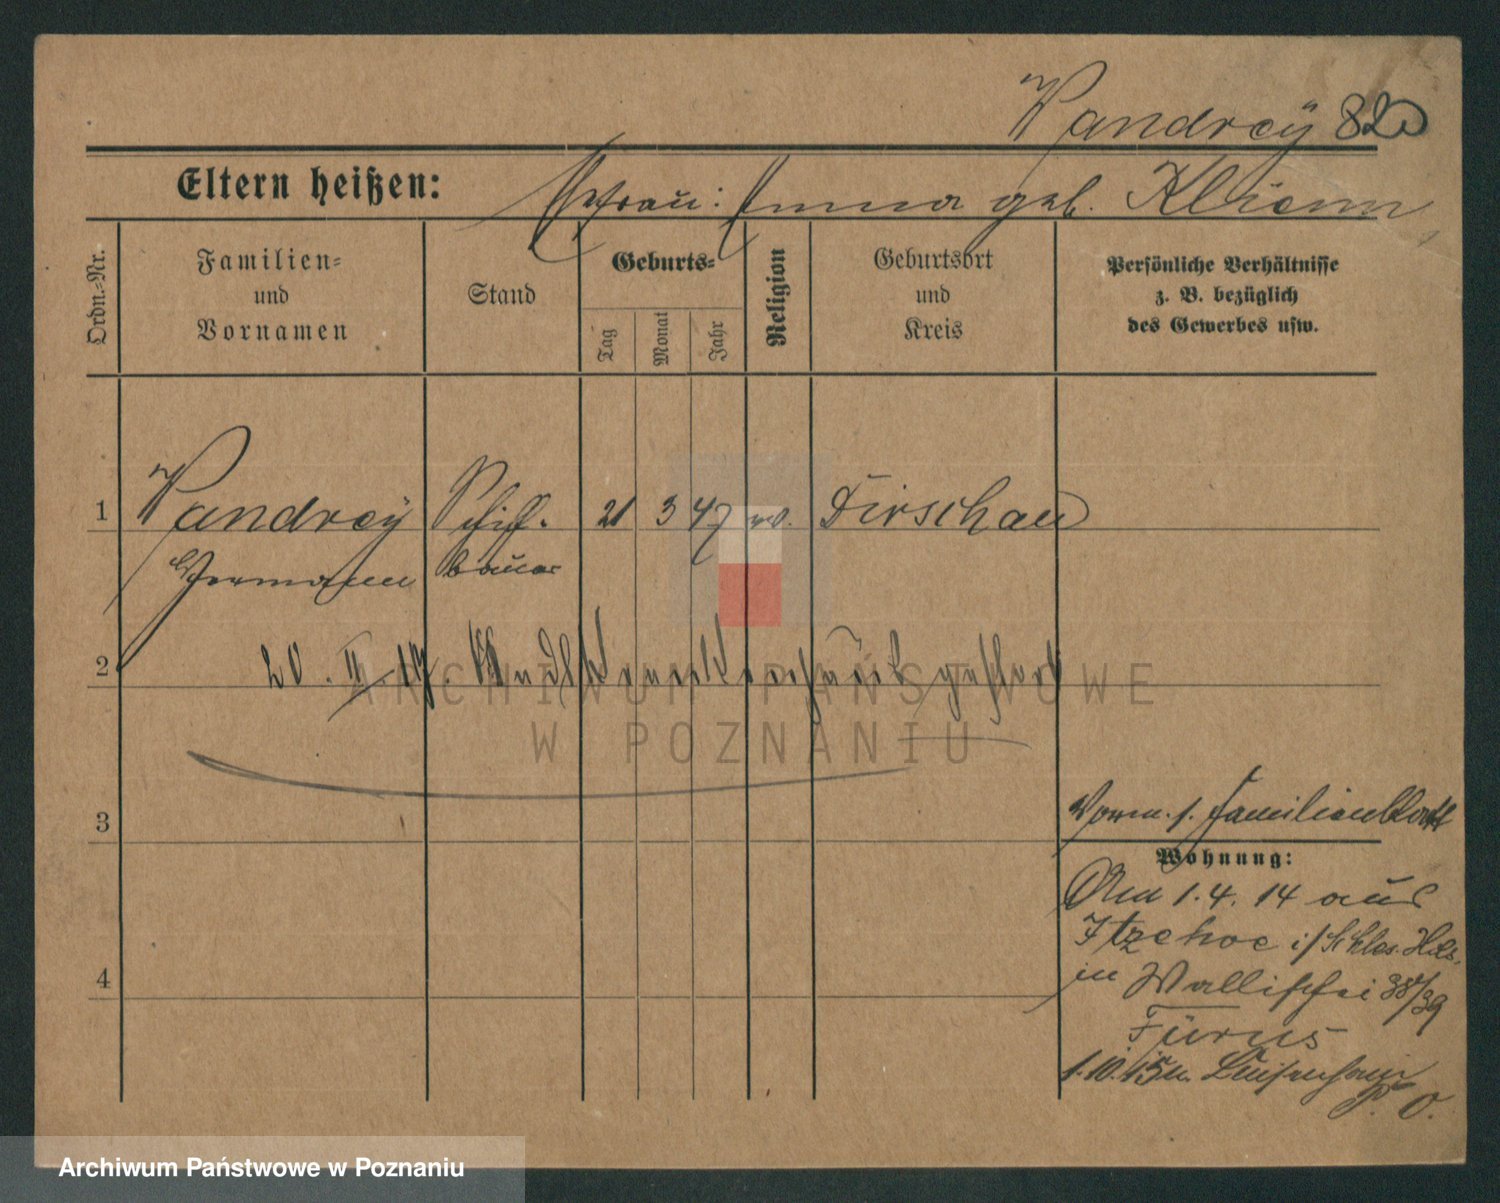 Wandreÿ 82
Eltern heißen:
Ehefrau: Emma geb. Kliem
Ordn.-Nr.
Familien-
und
Vornamen
Stand
Geburts-
Tag
Monat
Jahr
Religion
Geburtsort
und
Kreis
Persönliche Verhältnisse
z. B. bezüglich
des Gewerbes usw.
1 Wandreÿ Schiff- 21 3 47 ev. Dirschau
Hermann bauer
2 20. II. 19.
3
Vorm. s. Familienblatt
Wohnung:
Am 1.4.14 aus
Itzehoe i/Schles. Hols.
4
in Wallischei 38/39
1.10.15 n. Luisenhain
P. O.
ARCHIWUM PAŃSTWOWE
W POZNANIU
Archiwum Państwowe w Poznaniu